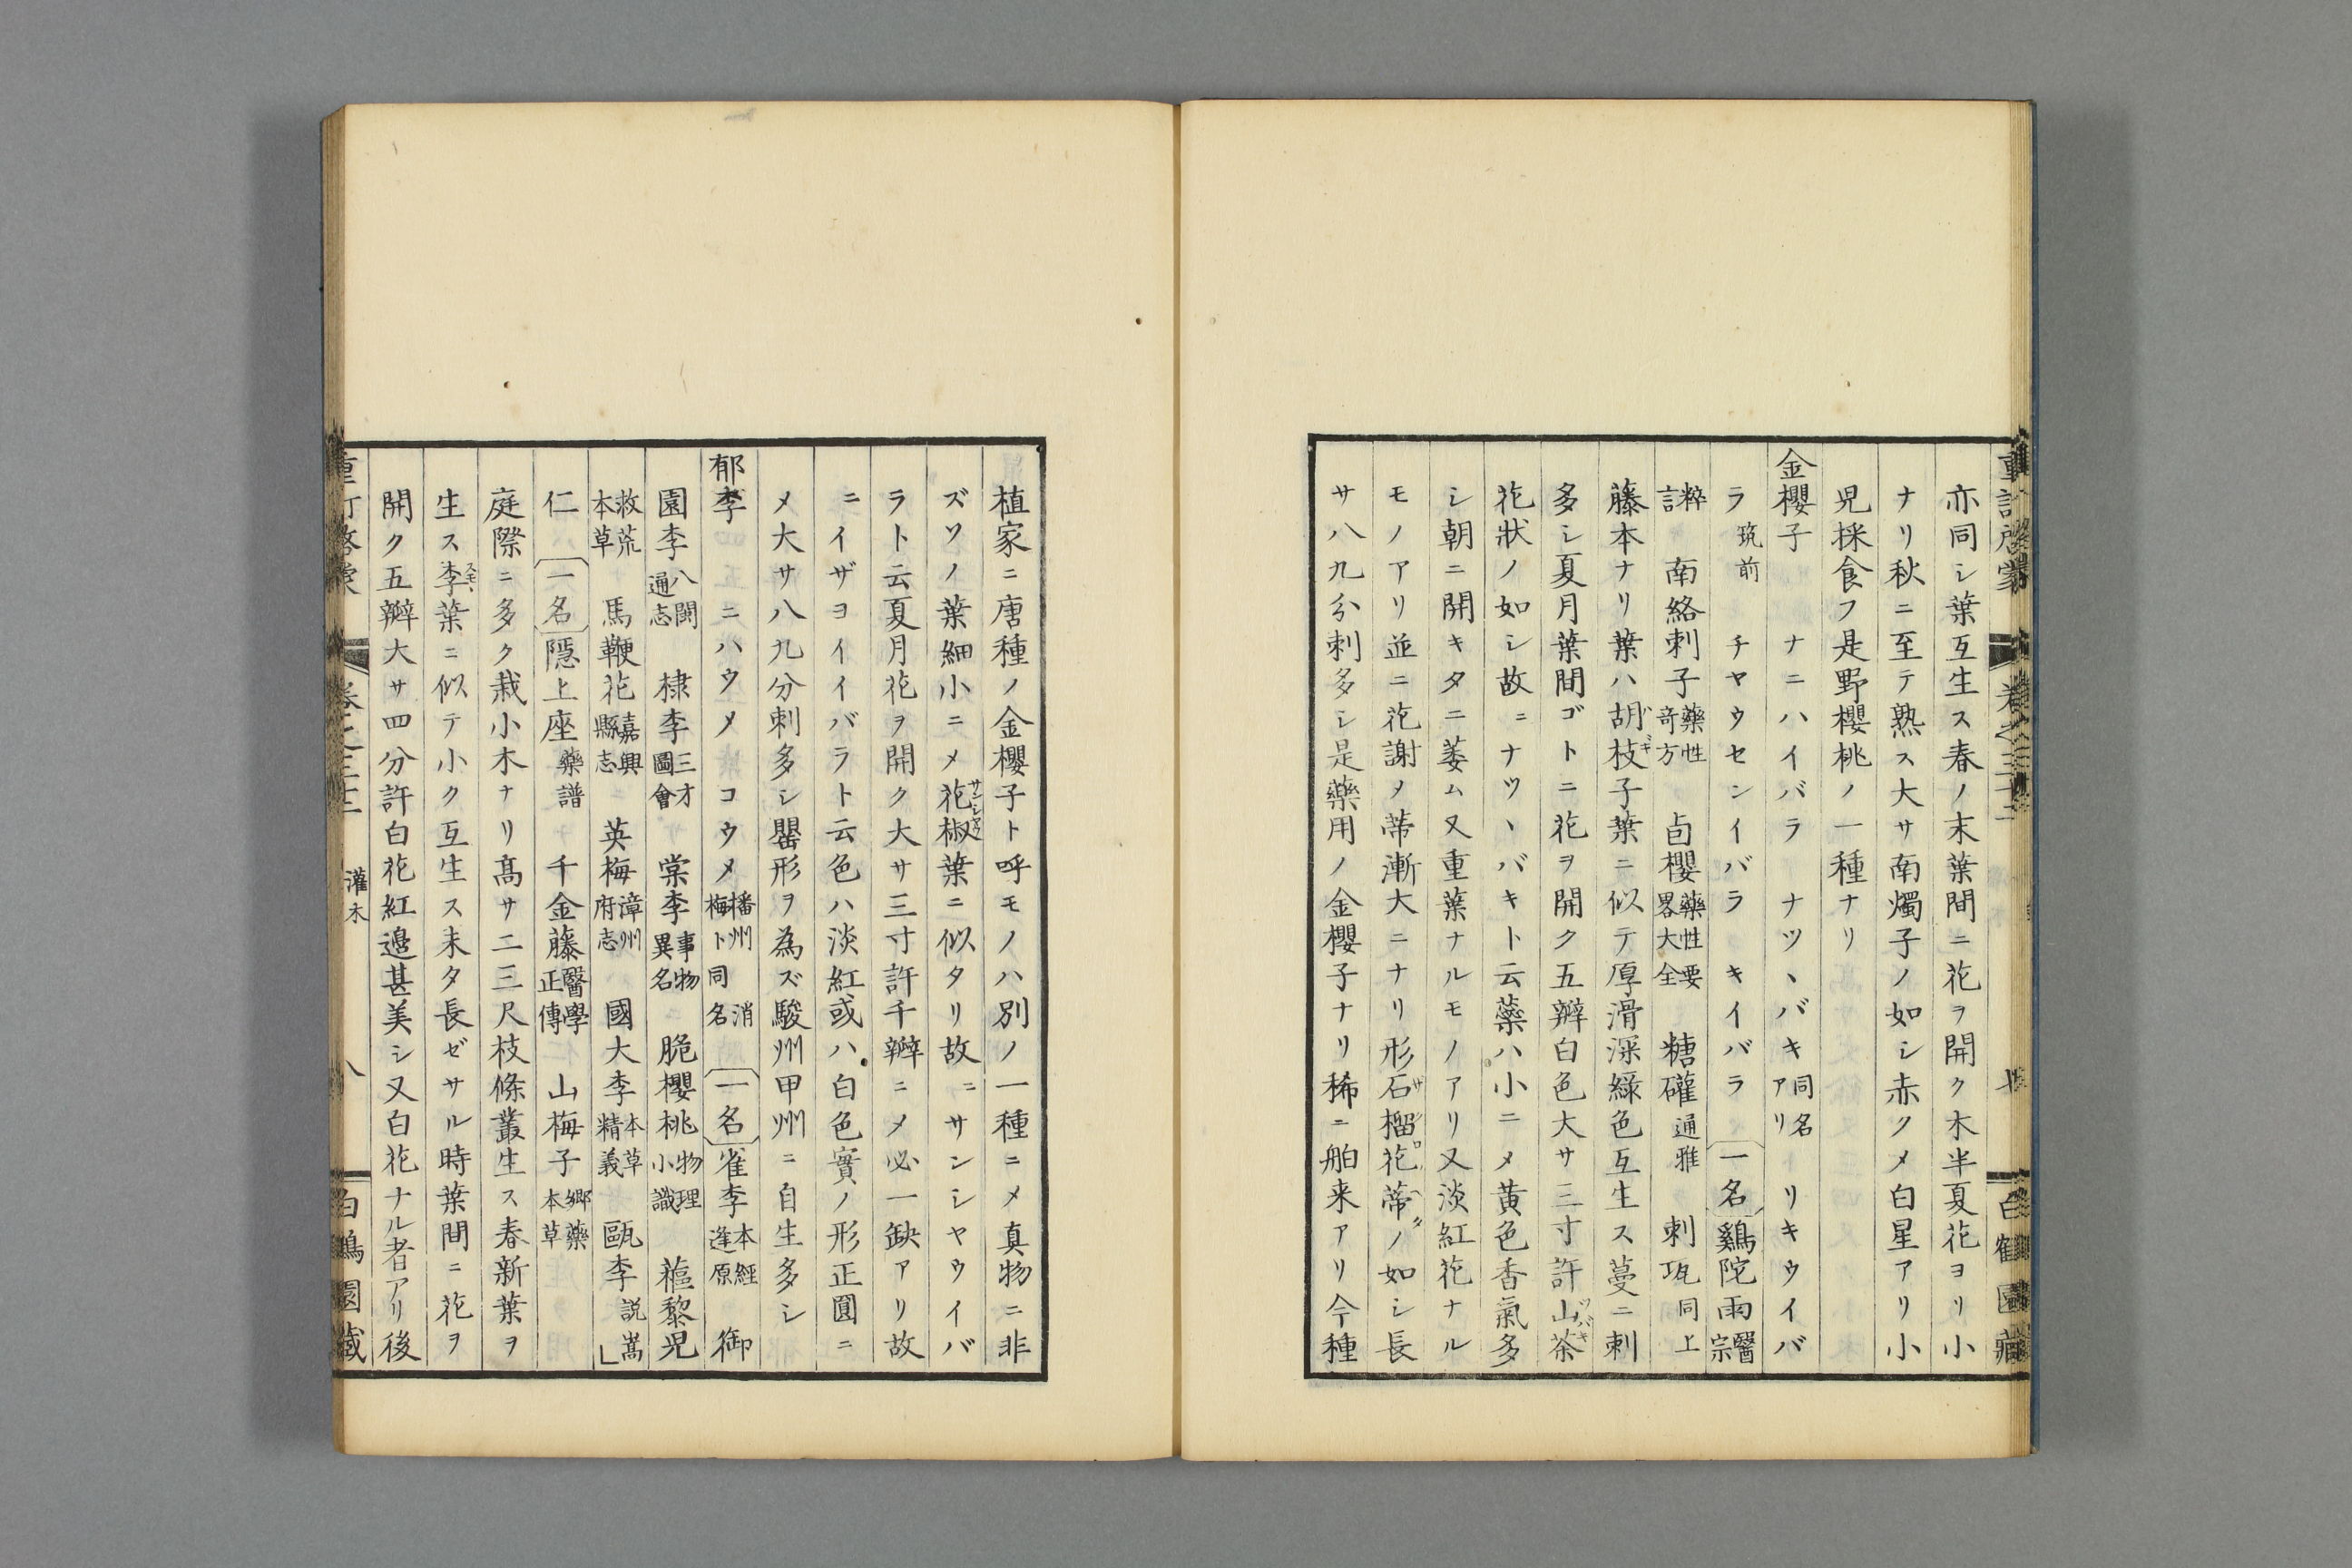 亦同シ葉互生ス春ノ末葉間ニ花ヲ開ク木半夏花ヨリ小
ナリ秋ニ至テ熟ス大サ南燭子ノ如シ赤クメ白星アリ小
児採食フ是野櫻桃ノ一種ナリ
金櫻子 ナニハイバラ ナツヽバキ同名アリ リキウイバ
ラ筑前 チヤウセンイバラ キイバラ 一名雞陀雨醫宗
粹言 南絡刺子藥性奇方 卣櫻藥性要畧大全 糖礶通雅 刺珁同上
藤本ナリ葉ハ胡枝子葉ニ似テ厚滑深緑色互生ス蔓ニ刺
多シ夏月葉間ゴトニ花ヲ開ク五瓣白色大サ三寸許山茶
花狀ノ如シ故ニナツヽバキト云蘂ハ小ニメ黄色香氣多
シ朝ニ開キタニ萎ム又重葉ナルモノアリ又淡紅花ナル
モノアリ並ニ花謝メ蒂漸大ニナリ形石榴花蒂ノ如シ長
サ八九分刺多シ是藥用ノ金櫻子ナリ稀ニ舶来アリ今種
植家ニ唐種ノ金櫻子ト呼モノハ別ノ一種ニメ真物ニ非
ズソノ葉細小ニメ花椒葉ニ似タリ故ニサンシヤウイバ
ラト云夏月花ヲ開ク大サ三寸許千瓣ニメ必一缺アリ故
ニイザヨイイバラト云色ハ淡紅或ハ白色實ノ形正圓ニ
メ大サ八九分刺多シ罌形ヲ為ズ駿州甲州ニ自生多シ
郁李 ニハウメ コウメ播州梅ト同名消 一名雀李本經逢原 御
園李八閩通志 棣李三才圖會 棠李事物異名 脆櫻桃物理小識 蓲黎児
救荒本草 馬鞭花嘉興縣志 英梅漳州府志 國大李本草精義 甌李説嵩
仁 一名隱上座藥譜 千金藤醫學正傳 山梅子郷藥本草
庭際ニ多ク栽小木ナリ髙サ二三尺枝條叢生ス春新葉ヲ
生ス李葉ニ似テ小ク互生ス未タ長ゼサル時葉間ニ花ヲ
開ク五瓣大サ四分許白花紅邉甚美シ又白花ナル者アリ後
灌木 八